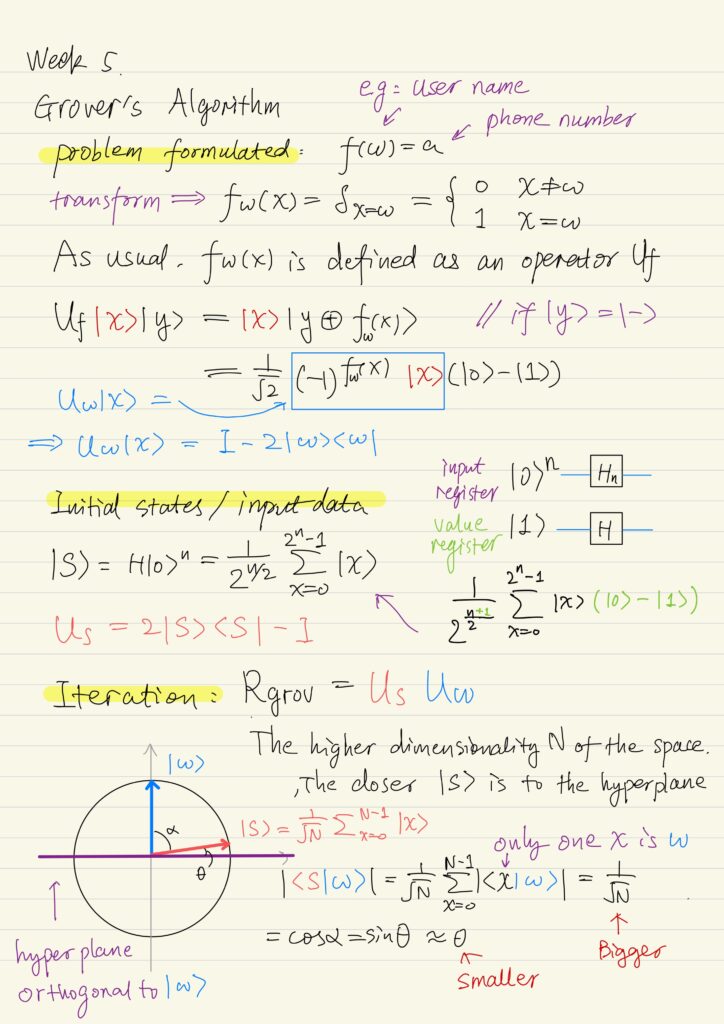 Week 5.
Grover's Algorithm
eg: user name
phone number
problem formulated: f(ω) = a
transform ⟹ fω(x) = δx=ω = { 0 x≠ω
1 x=ω
As usual. fω(x) is defined as an operator Uf
Uf|x>|y> = |x>|y ⊕ fω(x)> // if |y> = |->
= 1/√2 (-1)^fω(x) |x>(|0>-|1>)
Uω|x> =
⟹ Uω|x> = I - 2|ω><ω|
input register |0>^n Hn
value register |1> H
Initial states / input data
|S> = H|0>^n = 1/2^(n/2) Σ_{x=0}^{2^n-1} |x>
1/2^((n+1)/2) Σ_{x=0}^{2^n-1} |x> (|0>-|1>)
Us = 2|S><S| - I
Iteration: Rgrov = Us Uω
The higher dimensionality N of the space.
, The closer |S> is to the hyperplane
|ω>
α
θ
|S> = 1/√N Σ_{x=0}^{N-1} |x>
only one x is ω
|<S|ω>| = 1/√N Σ_{x=0}^{N-1} |<x|ω>| = 1/√N
= cosα = sinθ ≈ θ
Smaller
Bigger
hyperplane
orthogonal to |ω>